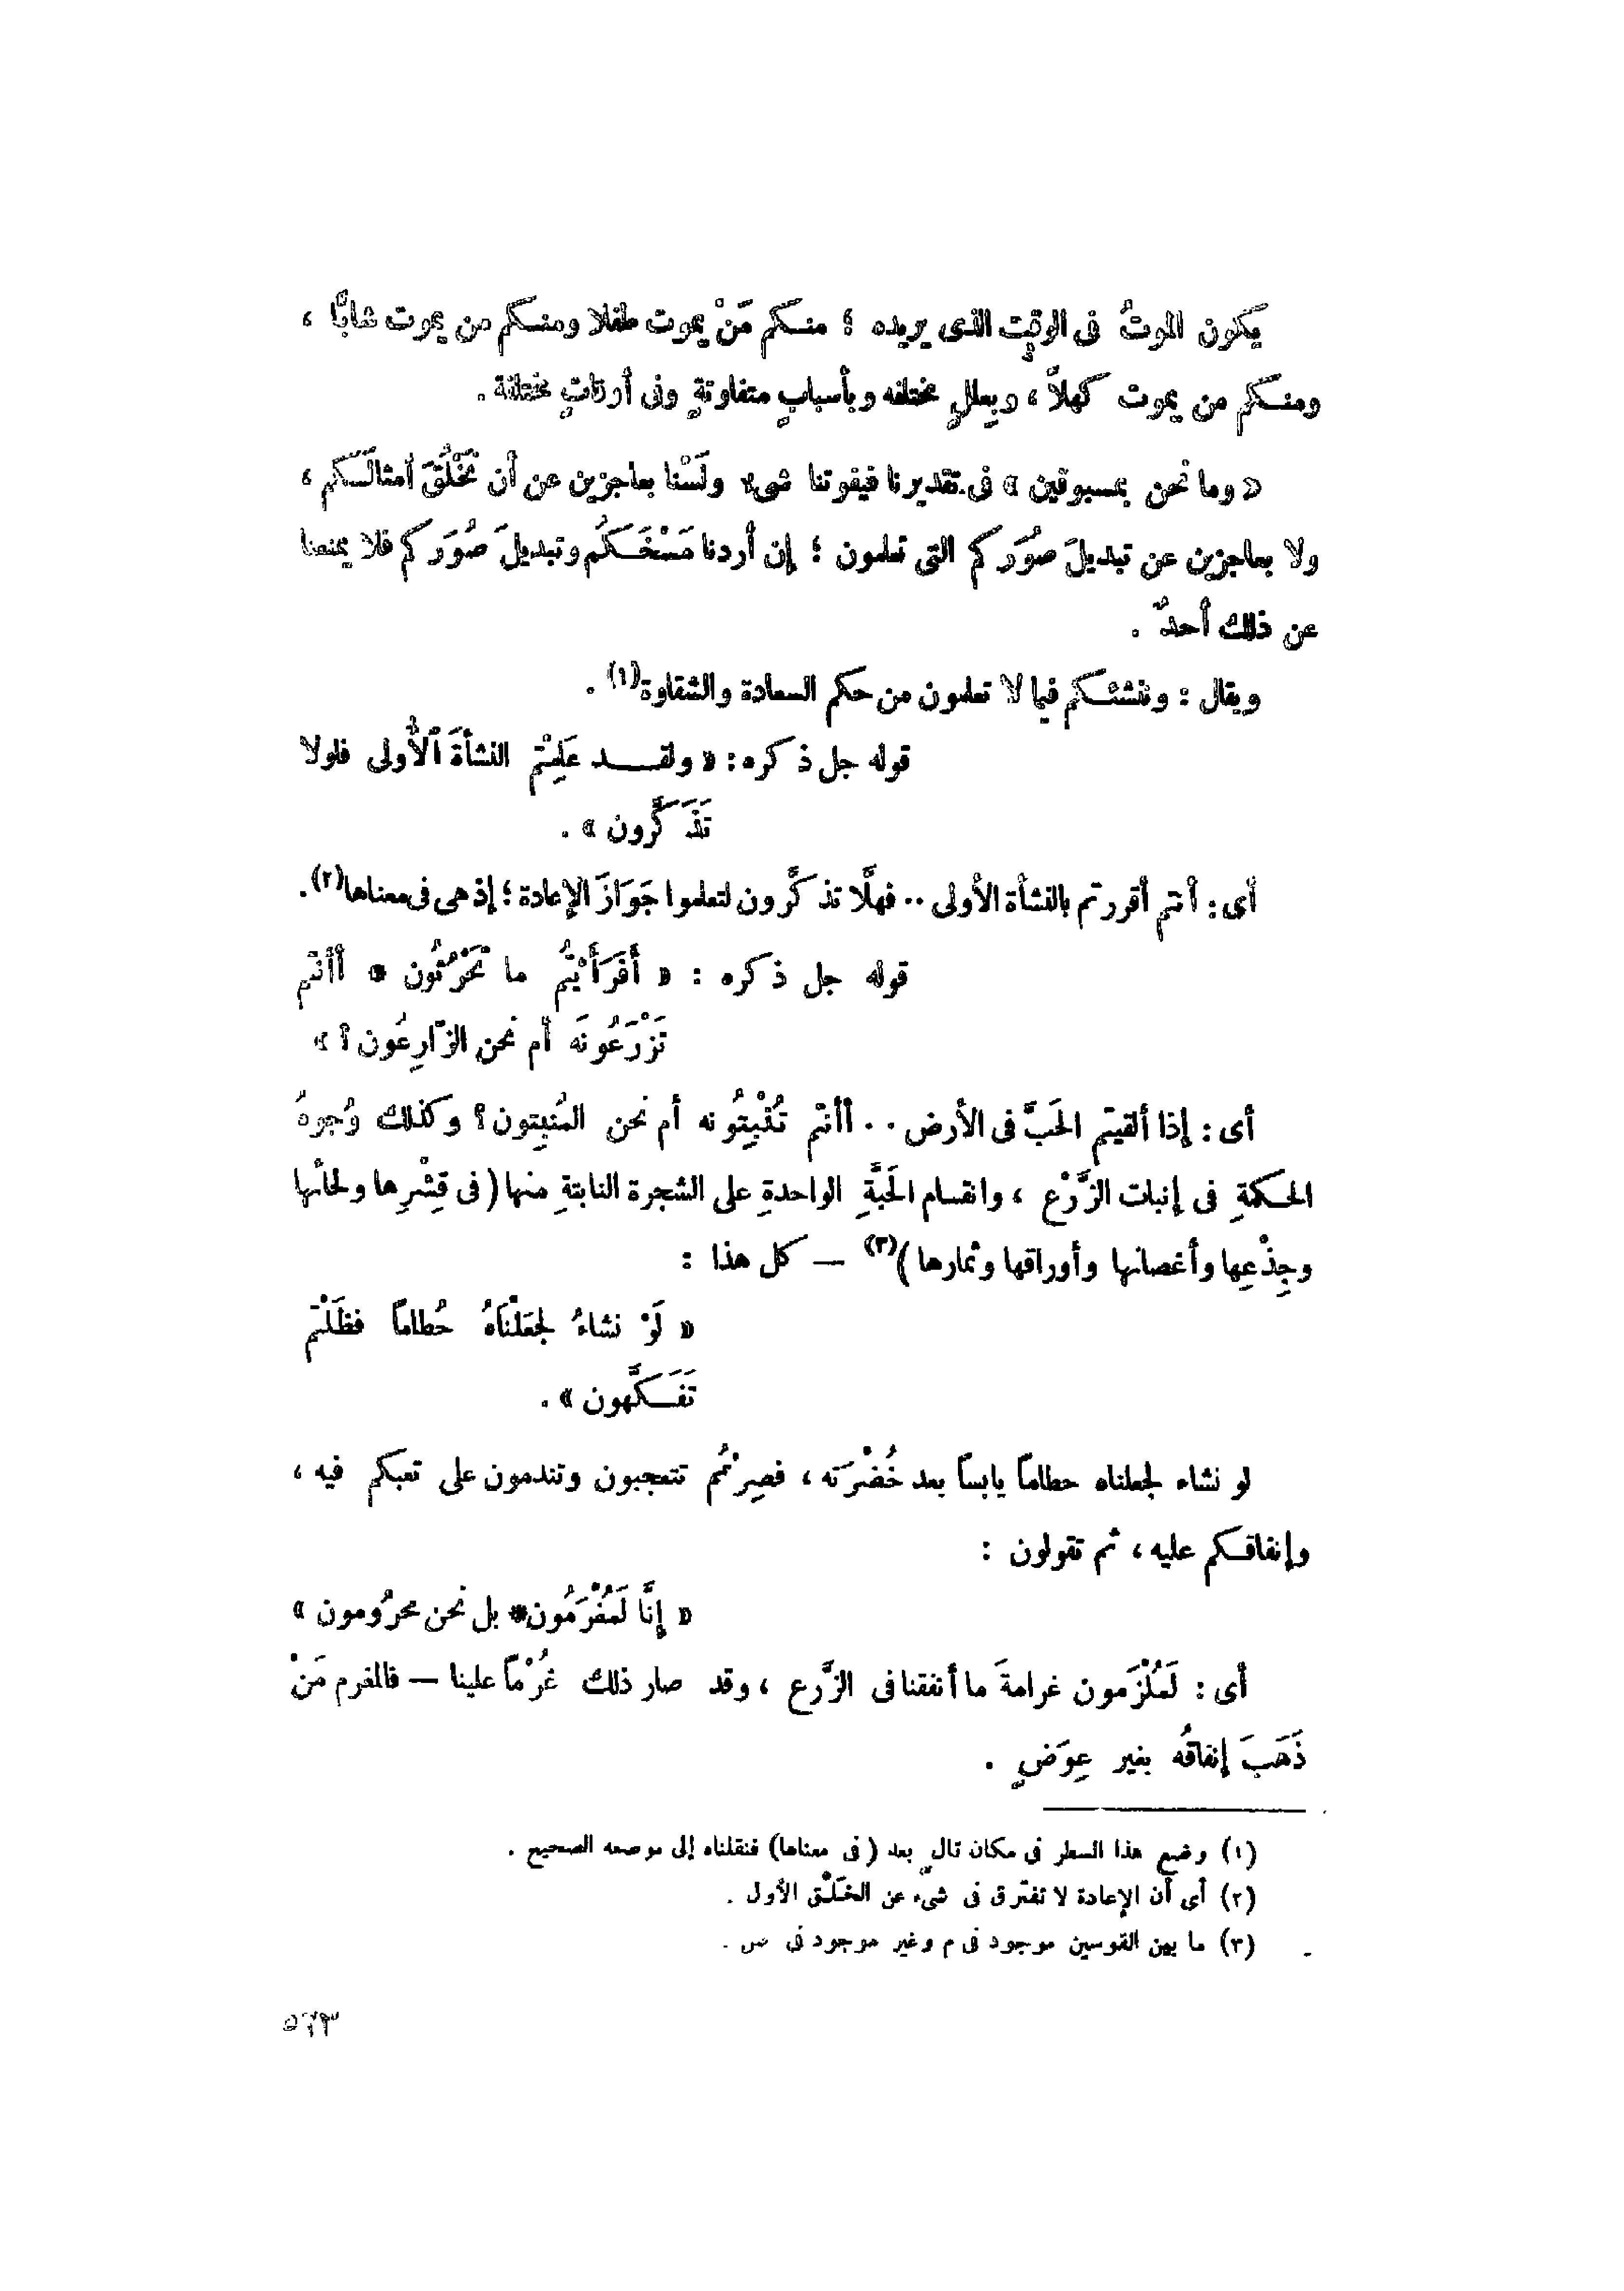 يكون الموتُ فى الوقتِ الذى يريده ؛ منكم مَنْ يموت طفلا ومنكم من يموت شابًّا ،
ومنكم من يموت كهلاً ، وبعللٍ مختلفه وبأسبابٍ متفاوتةٍ وفى أوقاتٍ مختلفة .
« وما نحن بمسبوقين » فى تقديرنا فيفوتنا شىء ولَسْنا بعاجزين عن أن نَخْلُقَ أمثالَكم ،
ولا بعاجزين عن تبديلَ صُوَركم التى تعلمون ؛ إن أردنا مَسْخَكُم وتبديلَ صُوَركم فلا يمنعنا
عن ذلك أحدٌ .
ويقال : وننشئكم فيما لا تعلمون من حكم السعادة والشقاوة(١) .
قوله جل ذكره : « ولقد عَلِمْتم النشأةَ الأُولى فلولا
تَذَكَّرون » .
أى : أنتم أقررتم بالنشأة الأولى .. فهلَّا تذكَّرون لتعلموا جَوَازَ الإعادة ؛ إذ هى فى معناها(٢) .
قوله جل ذكره : « أَفَرَأَيْتُم ما تَحْرُثُون * أأنتم
تَزْرَعُونَه أم نحن الزَّارِعُون ؟ »
أى : إذا ألقيتم الحَبَّ فى الأرض .. أأنتم تُنْبِتُونه أم نحن المُنبِتون ؟ وكذلك وُجوهُ
الحكمةِ فى إنبات الزَّرْع ، وانقسام الحَبَّةِ الواحدةِ على الشجرة النابتةِ منها ( فى قِشْرِها ولحائها
وجِذْعِها وأغصانها وأوراقها وثمارها )(٣) — كل هذا :
« لَوْ نشاءُ لجعَلْنَاهُ حُطاماً فظَلْتم
تَفَكَّهون » .
لو نشاء لجعلناه حطاماً يابساً بعد خُضْرَته ، فصِرْتُم تتعجبون وتندمون على تعبكم فيه ،
وإنفاقكم عليه ، ثم تقولون :
« إنَّا لَمُغْرَمُون * بل نحن محرُومون »
أى : لَمُلْزَمون غرامةَ ما أنفقنا فى الزَّرع ، وقد صار ذلك غُرْماً علينا — فالمغرم مَنْ
ذَهَبَ إنفاقُه بغير عِوَضٍ .
(١) وضع هذا السطر فى مكان تالٍ بعد ( فى معناها ) فنقلناه إلى موضعه الصحيح .
(٢) أى أن الإعادة لا تفترق فى شىء عن الخَلْق الأول .
(٣) ما بين القوسين موجود فى م وغير موجود فى ص .
٥٢٣